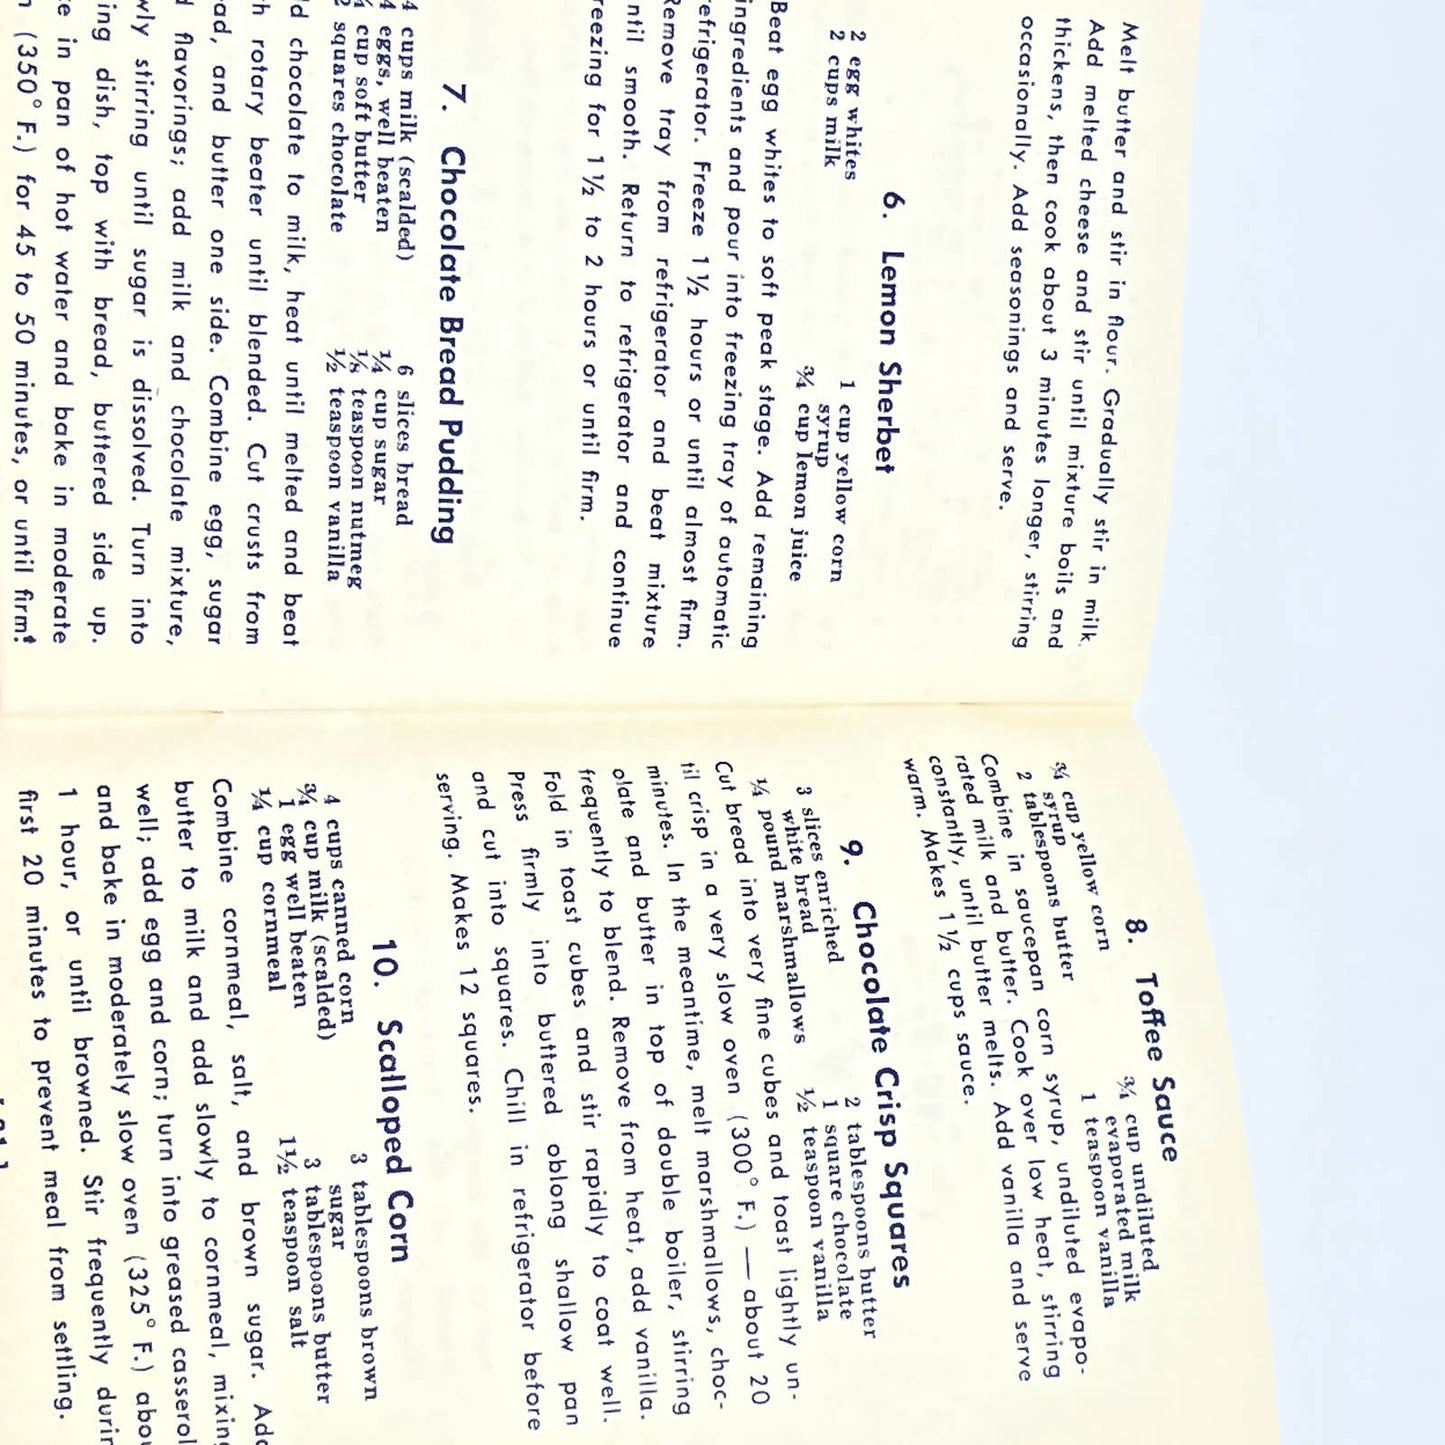 Melt butter and stir in flour. Gradually stir in milk.
Add melted cheese and stir until mixture boils and
thickens, then cook about 3 minutes longer, stirring
occasionally. Add seasonings and serve.
6. Lemon Sherbet
2 egg whites
2 cups milk
1 cup yellow corn
syrup
¾ cup lemon juice
Beat egg whites to soft peak stage. Add remaining
ingredients and pour into freezing tray of automatic
refrigerator. Freeze 1½ hours or until almost firm.
Remove tray from refrigerator and beat mixture
until smooth. Return to refrigerator and continue
freezing for 1½ to 2 hours or until firm.
7. Chocolate Bread Pudding
4 cups milk (scalded)
4 eggs, well beaten
¼ cup soft butter
2 squares chocolate
6 slices bread
¼ cup sugar
⅛ teaspoon nutmeg
½ teaspoon vanilla
d chocolate to milk, heat until melted and beat
h rotary beater until blended. Cut crusts from
ad, and butter one side. Combine egg, sugar
d flavorings; add milk and chocolate mixture,
wly stirring until sugar is dissolved. Turn into
ing dish, top with bread, buttered side up.
e in pan of hot water and bake in moderate
n (350° F.) for 45 to 50 minutes, or until firm!
8. Toffee Sauce
¾ cup yellow corn
syrup
2 tablespoons butter
¾ cup undiluted
evaporated milk
1 teaspoon vanilla
Combine in saucepan corn syrup, undiluted evapo-
rated milk and butter. Cook over low heat, stirring
constantly, until butter melts. Add vanilla and serve
warm. Makes 1½ cups sauce.
9. Chocolate Crisp Squares
3 slices enriched
white bread
¼ pound marshmallows
2 tablespoons butter
1 square chocolate
½ teaspoon vanilla
Cut bread into very fine cubes and toast lightly un-
til crisp in a very slow oven (300° F.) — about 20
minutes. In the meantime, melt marshmallows, choc-
olate and butter in top of double boiler, stirring
frequently to blend. Remove from heat, add vanilla.
Fold in toast cubes and stir rapidly to coat well.
Press firmly into buttered oblong shallow pan
and cut into squares. Chill in refrigerator before
serving. Makes 12 squares.
10. Scalloped Corn
4 cups canned corn
¾ cup milk (scalded)
1 egg well beaten
¼ cup cornmeal
3 tablespoons brown
sugar
3 tablespoons butter
1½ teaspoon salt
Combine cornmeal, salt, and brown sugar. Add
butter to milk and add slowly to cornmeal, mixing
well; add egg and corn; turn into greased casserol
and bake in moderately slow oven (325° F.) abou
1 hour, or until browned. Stir frequently durin
first 20 minutes to prevent meal from settling.